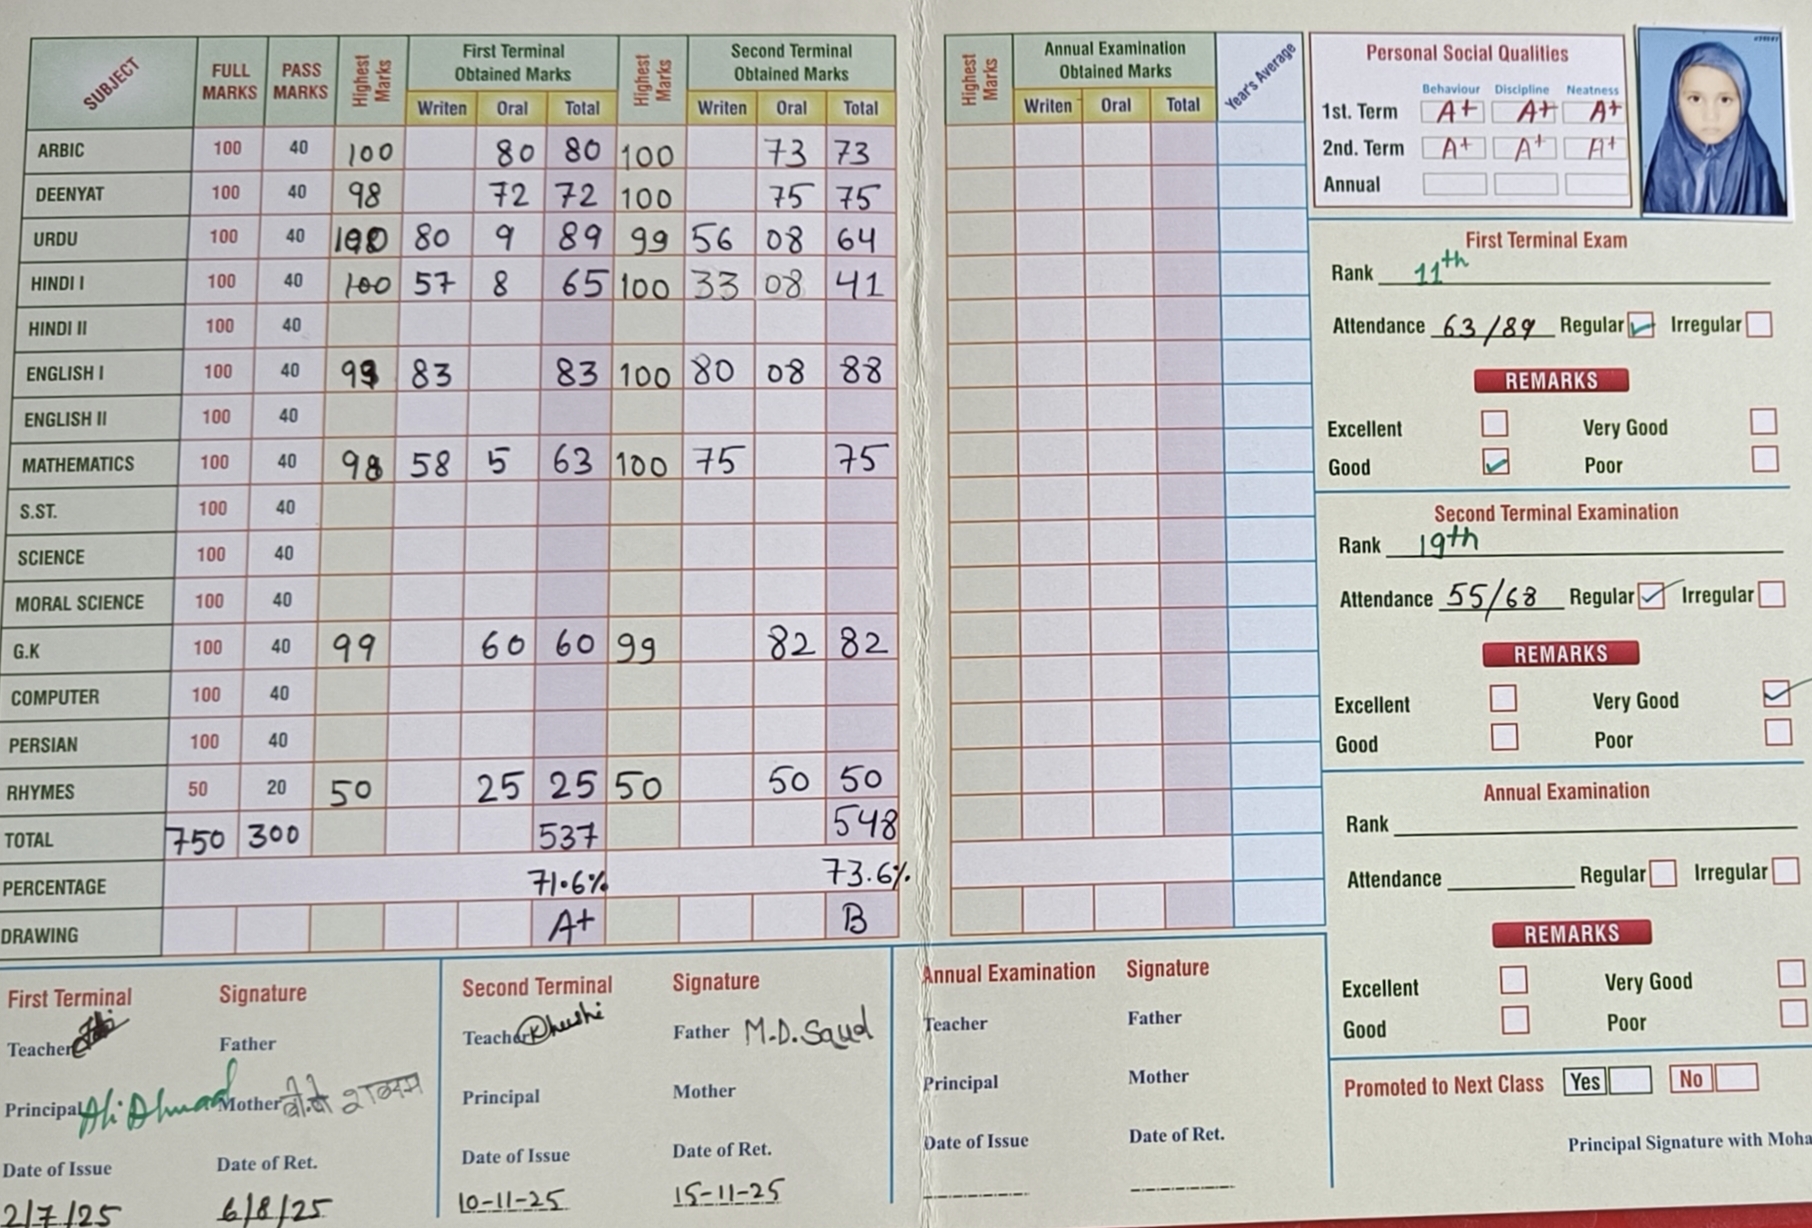 SUBJECT FULL MARKS PASS MARKS Highest Marks First Terminal Obtained Marks Highest Marks Second Terminal Obtained Marks
Writen Oral Total Writen Oral Total
ARBIC 100 40 100 80 80 100 73 73
DEENYAT 100 40 98 72 72 100 75 75
URDU 100 40 100 80 9 89 99 56 08 64
HINDI I 100 40 100 57 8 65 100 33 08 41
HINDI II 100 40
ENGLISH I 100 40 99 83 83 100 80 08 88
ENGLISH II 100 40
MATHEMATICS 100 40 98 58 5 63 100 75 75
S.ST. 100 40
SCIENCE 100 40
MORAL SCIENCE 100 40
G.K 100 40 99 60 60 99 82 82
COMPUTER 100 40
PERSIAN 100 40
RHYMES 50 20 50 25 25 50 50 50
TOTAL 750 300 537 548
PERCENTAGE 71.6% 73.6%
DRAWING A+ B
First Terminal Signature
Teacher Father
Principal Ali Ahmad Mother
Date of Issue Date of Ret.
2/7/25 6/8/25
Second Terminal Signature
Teacher Khushi Father M.D. Saud
Principal Mother
Date of Issue Date of Ret.
10-11-25 15-11-25
Highest Marks Annual Examination Obtained Marks Year's Average
Writen Oral Total
Annual Examination Signature
Teacher Father
Principal Mother
Date of Issue Date of Ret.
Personal Social Qualities
Behaviour Discipline Neatness
1st. Term A+ A+ A+
2nd. Term A+ A+ A+
Annual
First Terminal Exam
Rank 11th
Attendance 63/89 Regular Irregular
REMARKS
Excellent Very Good
Good Poor
Second Terminal Examination
Rank 19th
Attendance 55/68 Regular Irregular
REMARKS
Excellent Very Good
Good Poor
Annual Examination
Rank
Attendance Regular Irregular
REMARKS
Excellent Very Good
Good Poor
Promoted to Next Class Yes No
Principal Signature with Moha